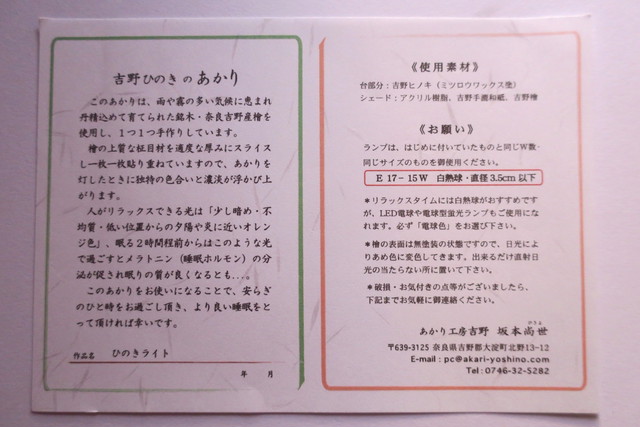 吉野ひのき の あかり
このあかりは、雨や霧の多い気候に恵まれ
丹精込めて育てられた銘木・奈良吉野産檜を
使用し、1つ1つ手作りしています。
檜の上質な柾目材を適度な厚みにスライス
し一枚一枚貼り重ねていますので、あかりを
灯したときに独特の色合いと濃淡が浮かび上
がります。
人がリラックスできる光は「少し暗め・不
均質・低い位置からの夕陽や炎に近いオレン
ジ色」、眠る2時間程前からはこのような光
で過ごすとメラトニン（睡眠ホルモン）の分
泌が促され眠りの質が良くなるとも…。
このあかりをお使いになることで、安らぎ
のひと時をお過ごし頂き、より良い睡眠をと
って頂ければ幸いです。
作品名 ひのきライト
年 月
《使用素材》
台部分：吉野ヒノキ（ミツロウワックス塗）
シェード：アクリル樹脂、吉野手漉和紙、吉野檜
《お願い》
ランプは、はじめに付いていたものと同じW数・
同じサイズのものを御使用ください。
E 17－15W 白熱球・直径3.5cm以下
＊リラックスタイムには白熱球がおすすめです
が、LED電球や電球型蛍光ランプもご使用にな
れます。必ず「電球色」をお選び下さい。
＊檜の表面は無塗装の状態ですので、日光によ
りあめ色に変色してきます。出来るだけ直射日
光の当たらない所に置いて下さい。
＊破損・お気付きの点等がございましたら、
下記までお気軽に御連絡ください。
あかり工房吉野 坂本尚世
〒639-3125 奈良県吉野郡大淀町北野13-12
E-mail：pc@akari-yoshino.com
Tel:0746-32-5282